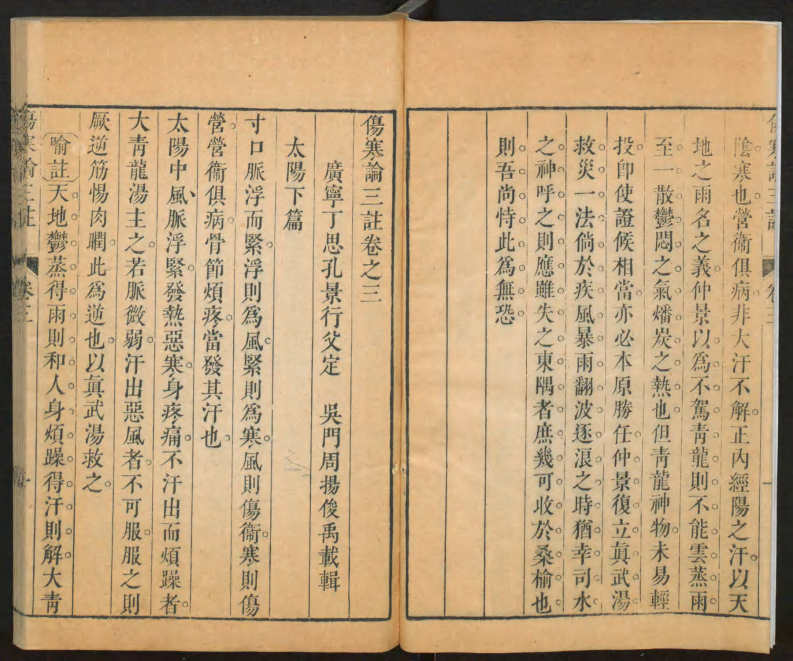 陰寒也營衞俱病非大汗不解正內經陽之汗以天
地之雨名之義仲景以爲不駕青龍則不能雲蒸雨
至一散鬱悶之氣燔炭之熱也但青龍神物未易輕
投卽使證候相當亦必本原勝任仲景復立眞武湯
救災一法倘於疾風暴雨翻波逐浪之時猶幸司水
之神呼之則應雖失之東隅者庶幾可收於桑榆也
則吾尚恃此爲無恐
傷寒論三註卷之三
廣寧丁思孔景行父定　吳門周揚俊禹載輯
太陽下篇
寸口脈浮而緊浮則爲風緊則爲寒風則傷衞寒則傷
營營衞俱病骨節煩疼當發其汗也
太陽中風脈浮緊發熱惡寒身疼痛不汗出而煩躁者
大青龍湯主之若脈微弱汗出惡風者不可服服之則
厥逆筋惕肉瞤此爲逆也以眞武湯救之
喻註天地鬱蒸得雨則和人身煩躁得汗則解大青
傷寒論三註　卷三　一